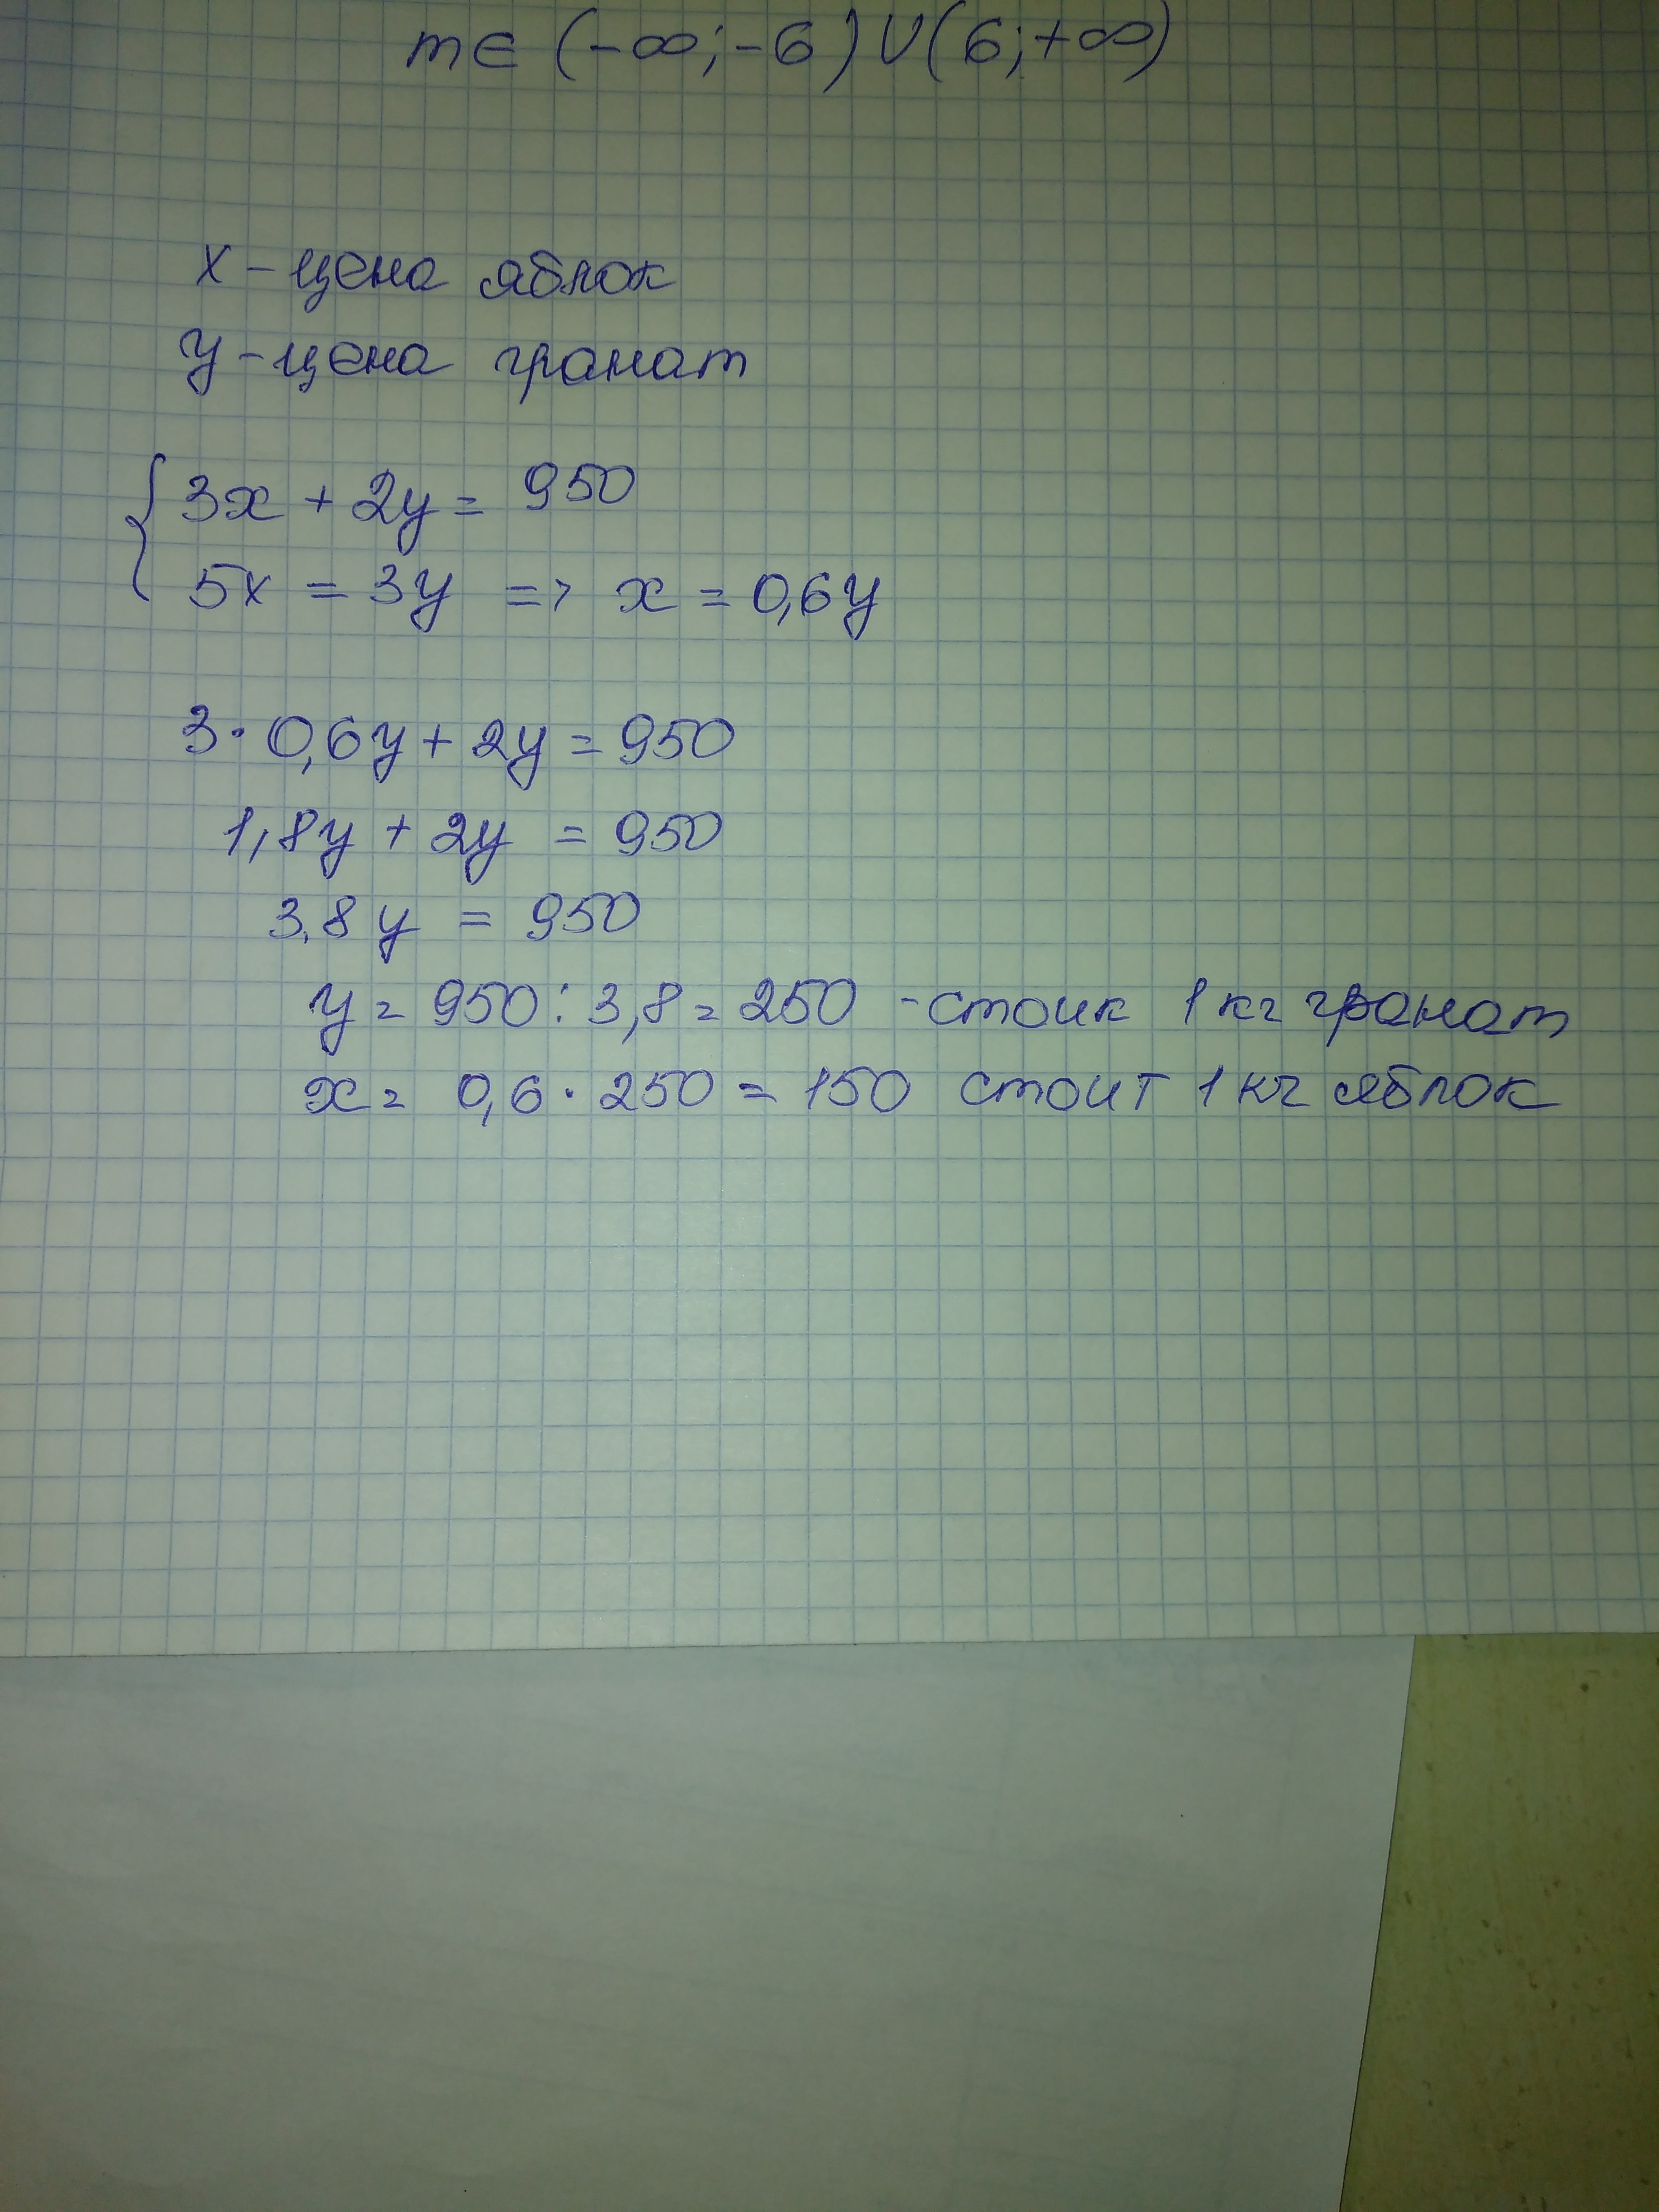 m∈ (-∞;-6)∪(6;+∞)
x - цена яблок
y - цена гранат
{ 3x + 2y = 950
5x = 3y => x = 0,6y
3·0,6y + 2y = 950
1,8y + 2y = 950
3,8y = 950
y = 950:3,8 = 250 - стоик 1 кг гранат
x = 0,6·250 = 150 стоит 1 кг яблок